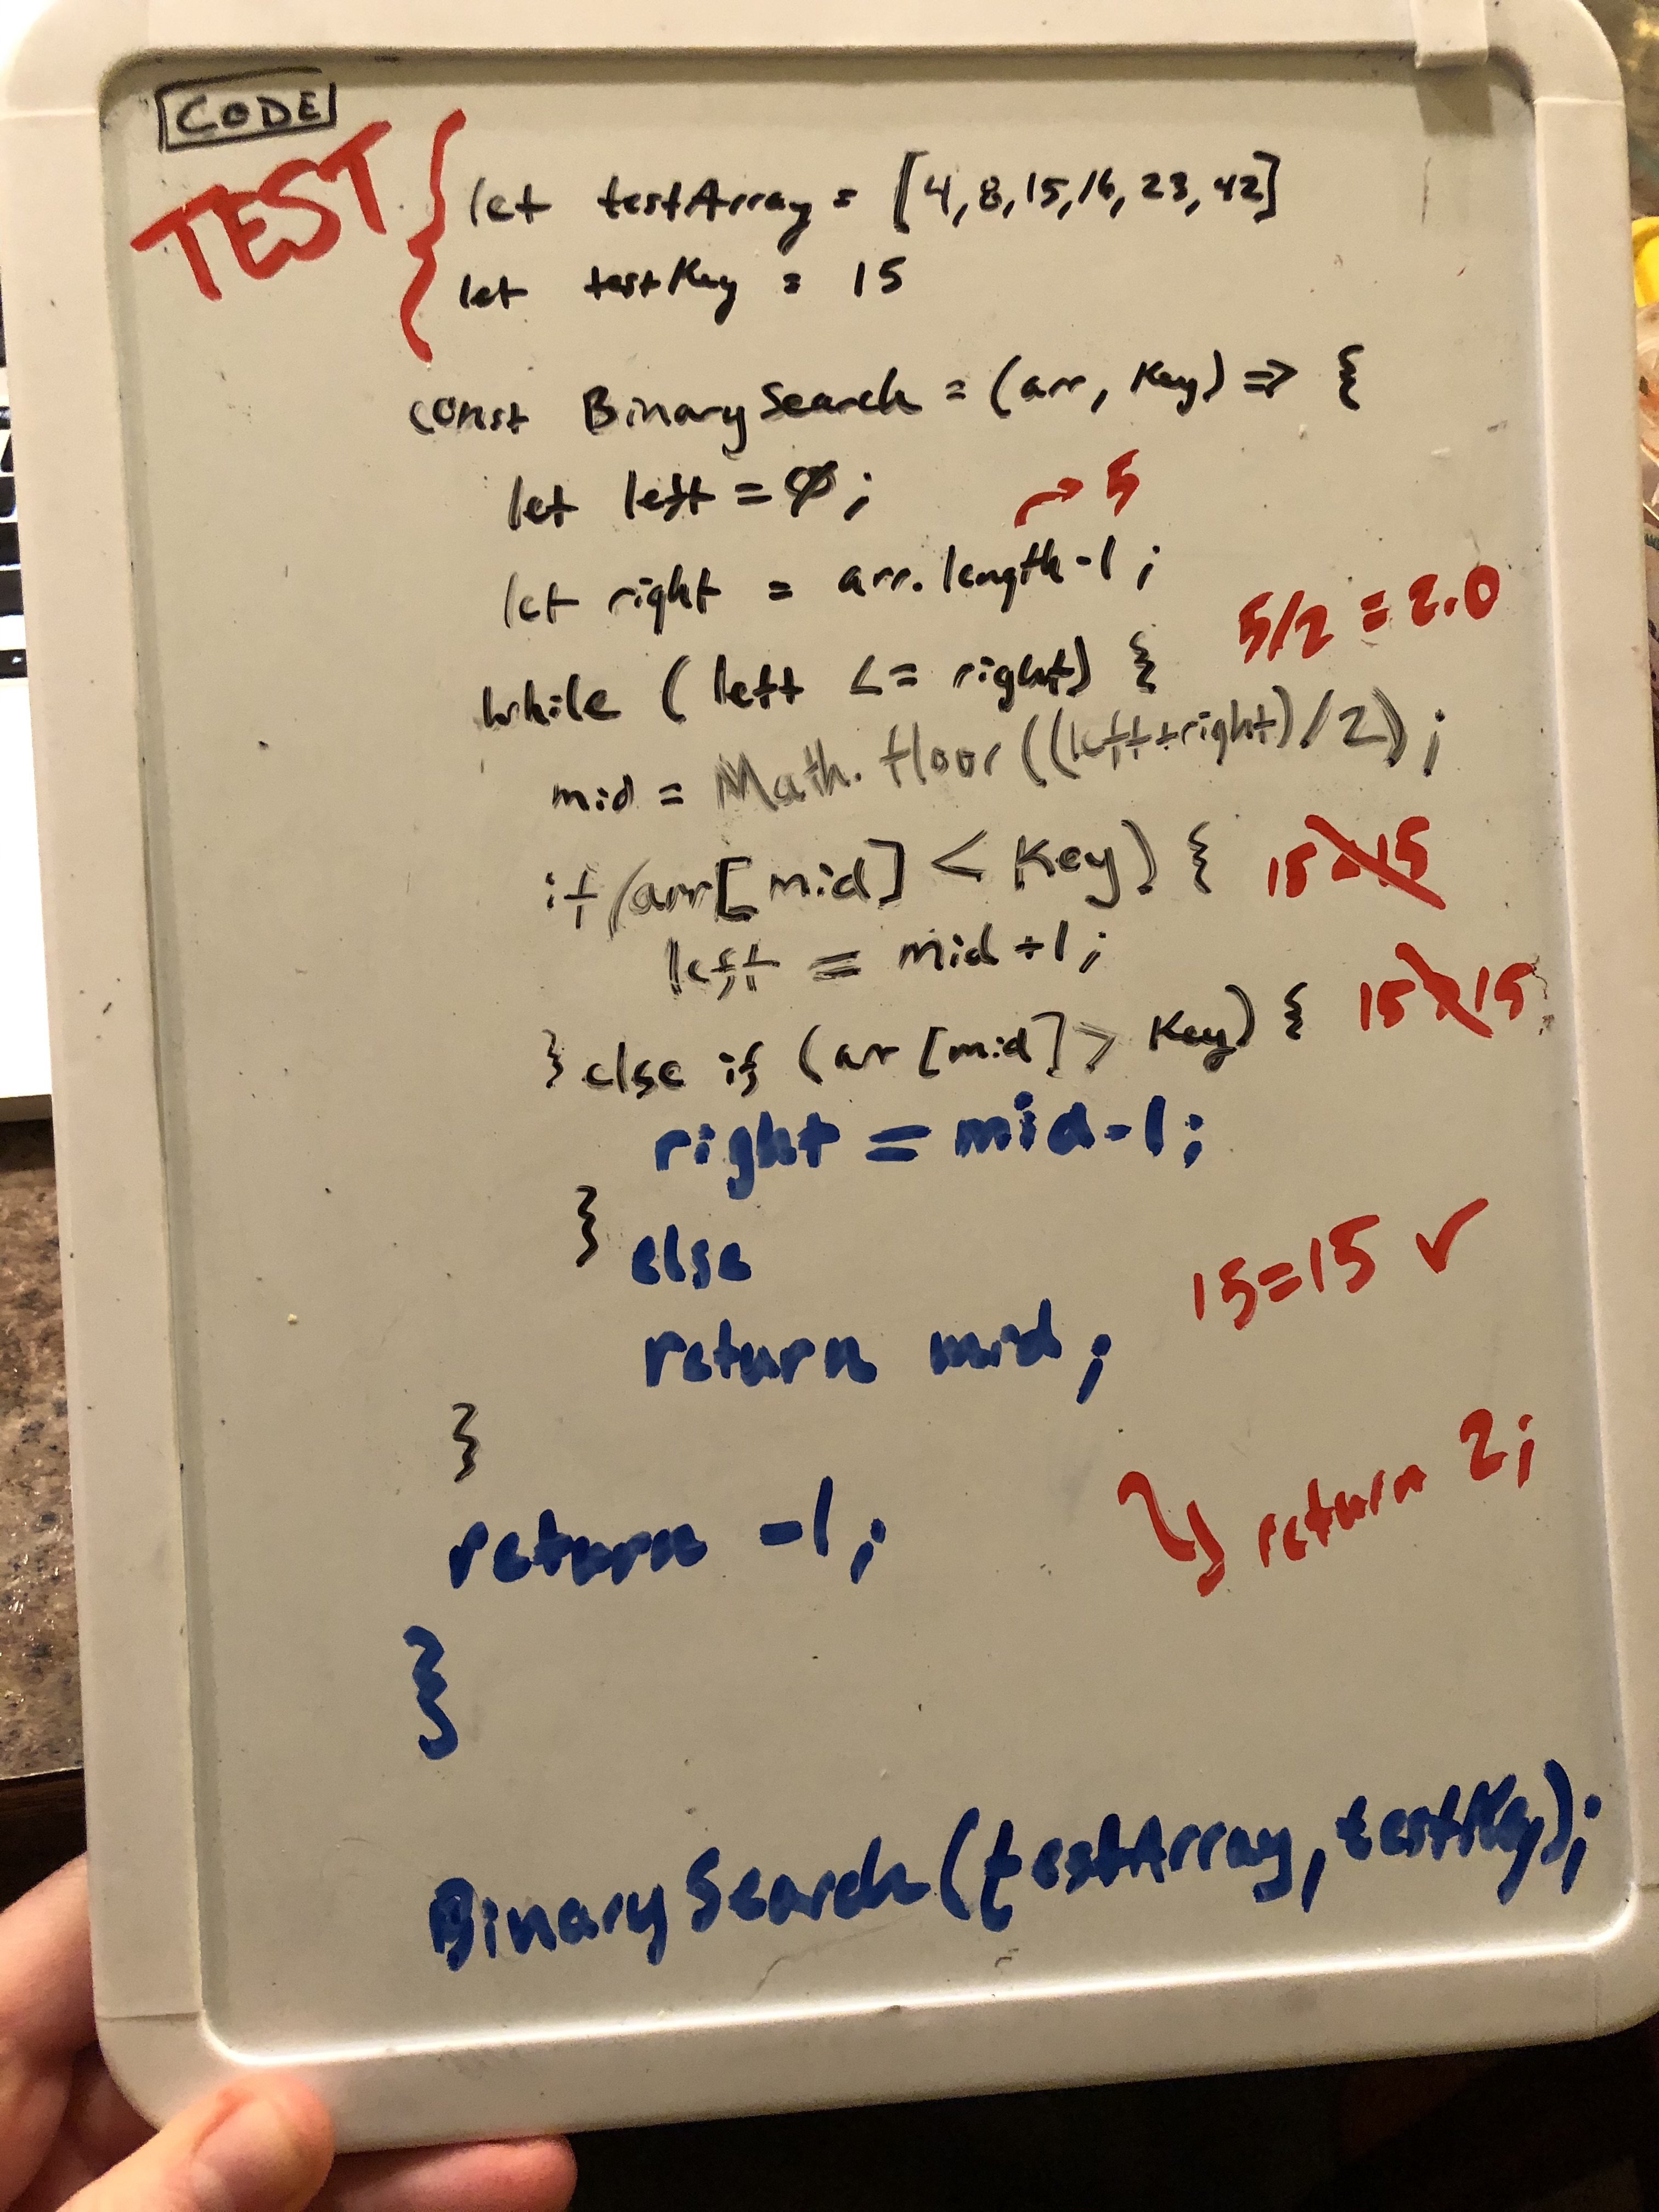 CODE
TEST {
let testArray = [4,8,15,16,23,42]
let testKey = 15
const BinarySearch = (arr, Key) => {
let left = 0;
→ 5
let right = arr.length-1;
5/2 = 2.0
while (left <= right) {
mid = Math.floor((left+right)/2);
if (arr[mid] < Key) { 15<15
left = mid+1;
} else if (arr[mid] > Key) { 15>15
right = mid-1;
} else
15=15 ✓
return mid;
}
return 2;
return -1;
}
BinarySearch(testArray,testKey);